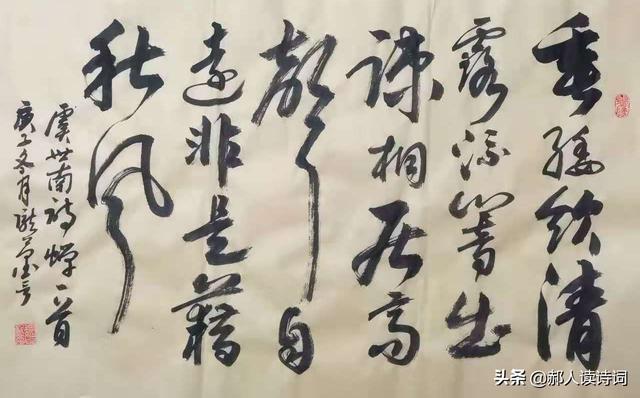 垂緌饮清
露流響出
疎桐居高
聲自
遠非是藉
秋风
虞世南诗蝉一首
庚子冬月
头条 @郝人读诗词